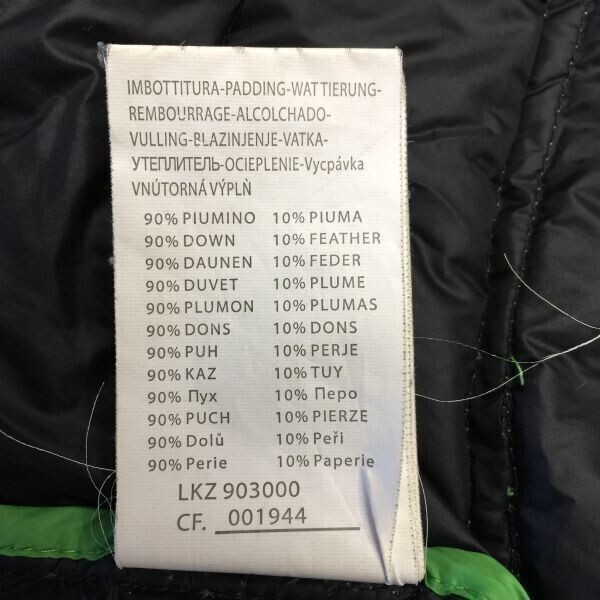 IMBOTTITURA-PADDING-WATTIERUNG-
REMBOURRAGE-ALCOLCHADO-
VULLING-BLAZINJENJE-VATKA-
УТЕПЛИТЕЛЬ-OCIEPLENIE-Vycpávka
VNÚTORNÁ VÝPLŇ
90% PIUMINO 10% PIUMA
90% DOWN 10% FEATHER
90% DAUNEN 10% FEDER
90% DUVET 10% PLUME
90% PLUMON 10% PLUMAS
90% DONS 10% DONS
90% PUH 10% PERJE
90% KAZ 10% TUY
90% Пух 10% Перо
90% PUCH 10% PIERZE
90% Dolů 10% Peři
90% Perie 10% Paperie
LKZ 903000
CF. 001944